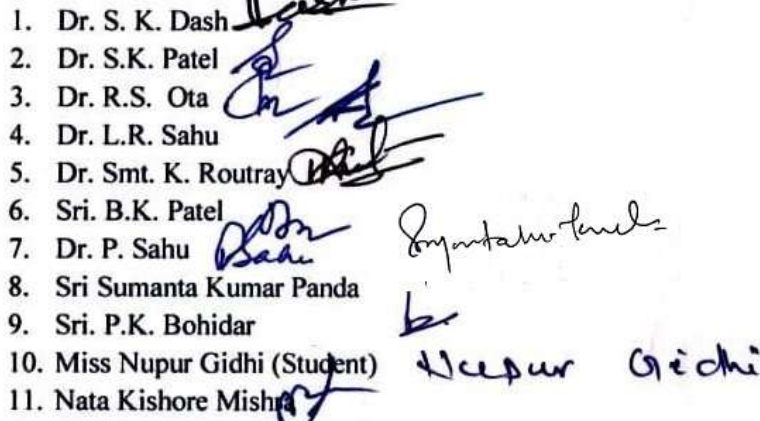 1. Dr. S. K. Dash
2. Dr. S.K. Patel
3. Dr. R.S. Ota
4. Dr. L.R. Sahu
5. Dr. Smt. K. Routray
6. Sri. B.K. Patel
7. Dr. P. Sahu Sahu
8. Sri Sumanta Kumar Panda
9. Sri. P.K. Bohidar
10. Miss Nupur Gidhi (Student) Nupur Gidhi
11. Nata Kishore Mishra